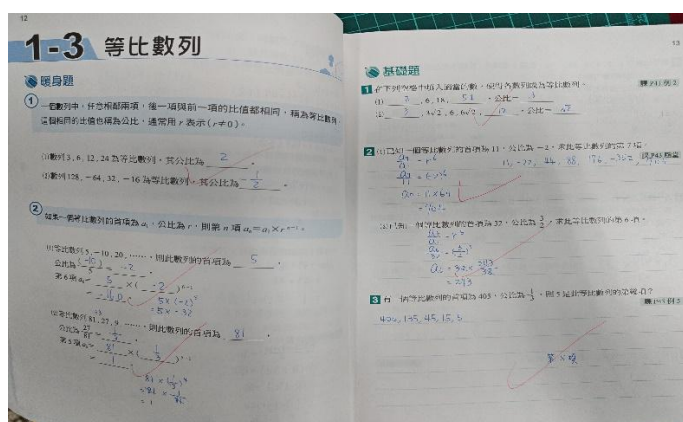 12
1-3 等比數列
暖身題
① 一個數列中，任意相鄰兩項，後一項與前一項的比值都相同，稱為等比數列，
這個相同的比值也稱為公比，通常用 r 表示 (r≠0)。
(1)數列 3, 6, 12, 24 為等比數列，其公比為 2 。
(2)數列 128, -64, 32, -16 為等比數列，其公比為 -1/2 。
② 如果一個等比數列的首項為 a₁，公比為 r，則第 n 項 aₙ=a₁×rⁿ⁻¹。
(1)等比數列 5, -10, 20, ……，則此數列的首項為 5 。
公比為 (-10)/5 = -2 。
第 6 項 a₆= 5 ×( -2 )⁶⁻¹
= -160 。
=5×(-2)⁵
=5×-32
(2)等比數列 81, 27, 9, ……，則此數列的首項為 81 。
公比為 27/81 = 1/3 。
第 5 項 a₅= 81 ×( 1/3 )⁵⁻¹
81×(1/3)⁴
=81×1/81
=1
13
基礎題
1 在下列空格中填入適當的數，使得各數列成為等比數列。
(1) 2 , 6, 18, 54 ，公比=3
2 (1)已知一個等比數列的首項為 11，公比為 -2，求此等比數列的第 7 項。
(2)已知一個等比數列的首項為 32，公比為 3/2，求此等比數列的第 6 項。
=243
3 有一個等比數列的首項為 405，公比為 1/3，則 5 是此等比數列的第幾項？
405, 135, 45, 15, 5
第 5 項